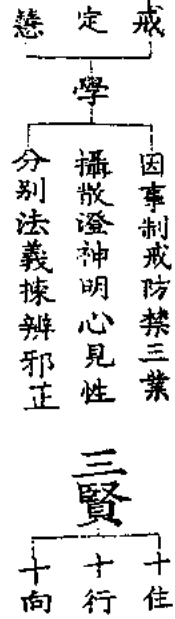 戒
定
慧
學
因事制戒防禁三業
攝散澄神明心見性
分別法義揀辨邪正
三賢
十住
十行
十向